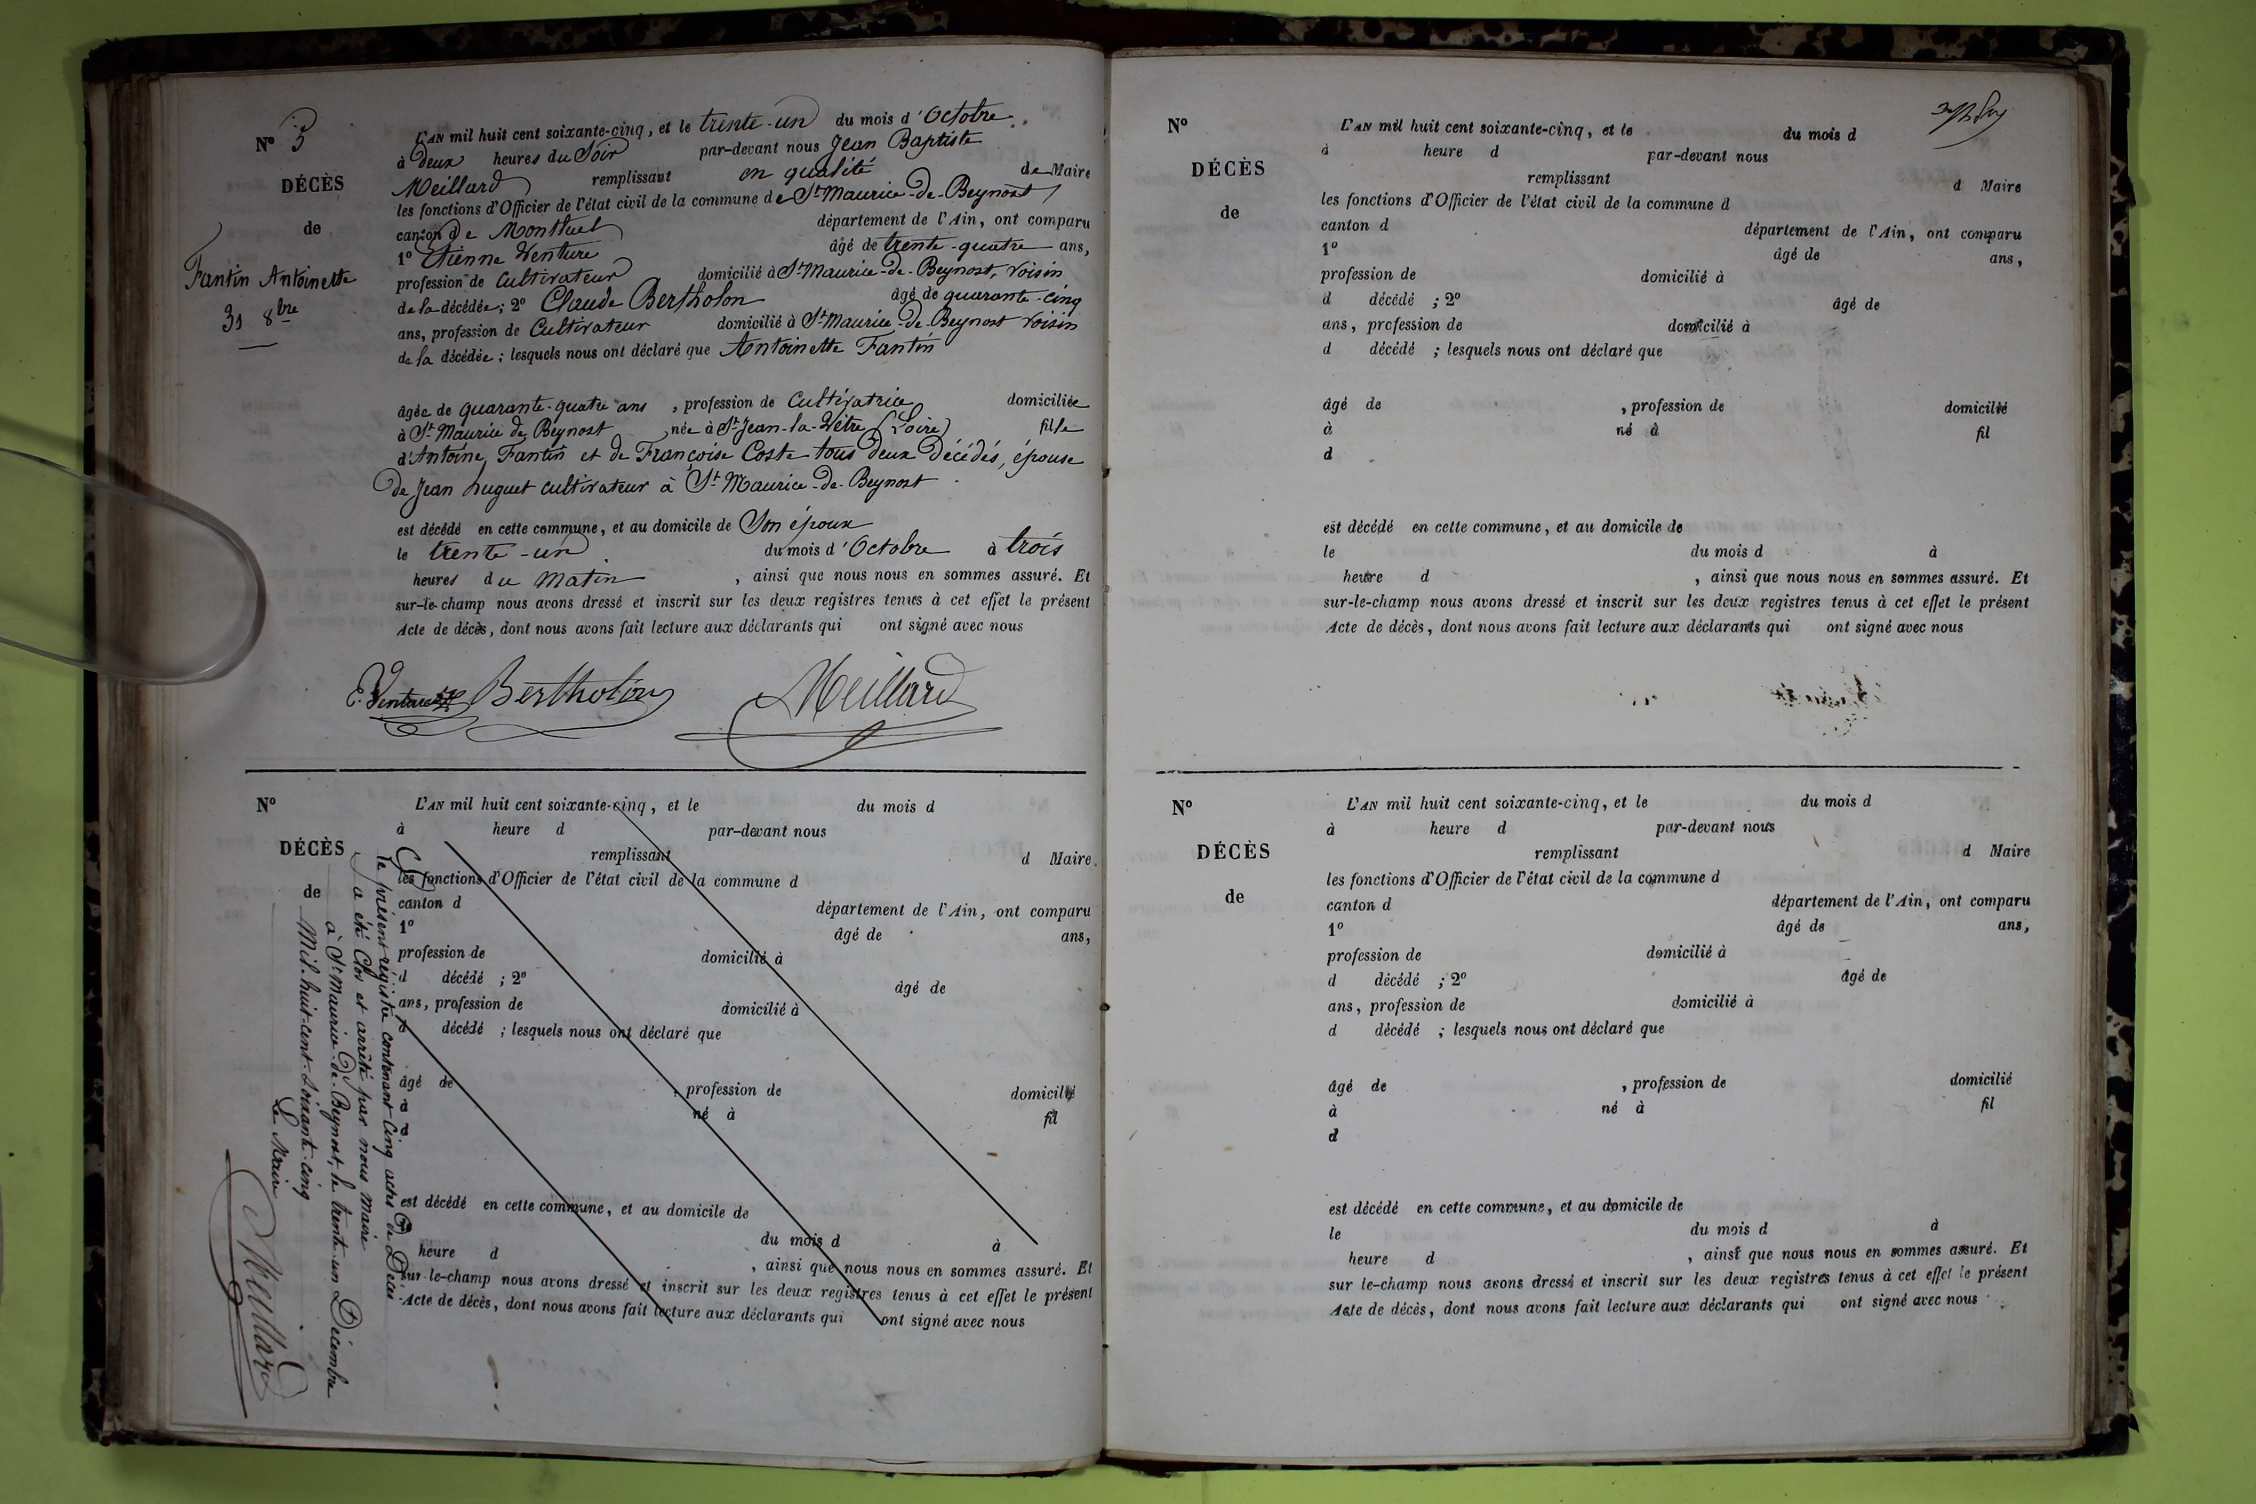 N° 5
DÉCÈS
de
Fantin Antoinette
31 8bre
L'AN mil huit cent soixante-cinq, et le trente-un du mois d'Octobre
à deux heures du Soir par-devant nous Jean Baptiste
Meillard remplissant en qualité de Maire
les fonctions d'Officier de l'état civil de la commune de St Maurice-de-Beynost
canton de Montluel département de l'Ain, ont comparu
1° Etienne Venture âgé de trente-quatre ans,
profession de Cultivateur domicilié à St Maurice-de-Beynost, voisin
de la décédée; 2° Claude Bertholon âgé de quarante-cinq
ans, profession de Cultivateur domicilié à St Maurice-de-Beynost voisin
de la décédée; lesquels nous ont déclaré que Antoinette Fantin
âgée de quarante-quatre ans, profession de Cultivatrice domiciliée
à St Maurice de Beynost née à St Jean-la-Vêtre (Loire) fille
d'Antoine Fantin et de Françoise Coste tous deux Décédés, épouse
De Jean huguet cultivateur à St Maurice-de-Beynost
est décédé en cette commune, et au domicile de Son époux
le trente-un du mois d'Octobre à trois
heures du Matin, ainsi que nous nous en sommes assuré. Et
sur-le-champ nous avons dressé et inscrit sur les deux registres tenus à cet effet le présent
Acte de décès, dont nous avons fait lecture aux déclarants qui ont signé avec nous
E. Venture Bertholon Meillard
N°
DÉCÈS
de
L'AN mil huit cent soixante-cinq, et le du mois d
à heure d par-devant nous
remplissant d Maire
les fonctions d'Officier de l'état civil de la commune d
canton d département de l'Ain, ont comparu
1° âgé de ans,
profession de domicilié à
d décédé ; 2° âgé de
ans, profession de domicilié à
d décédé ; lesquels nous ont déclaré que
âgé de , profession de domicilié
à né à fil
d
est décédé en cette commune, et au domicile de
le du mois d à
heure d , ainsi que nous nous en sommes assuré. Et
sur-le-champ nous avons dressé et inscrit sur les deux registres tenus à cet effet le présent
Acte de décès, dont nous avons fait lecture aux déclarants qui ont signé avec nous
le présent régistre contenant Cinq actes de Décès
a été Clos et arrêté par nous Maire
à St Maurice-de-Beynost, le trente-un Décembre
Mil-huit-cent-soixante-cinq
Le Maire
Meillard
N°
DÉCÈS
de
L'AN mil huit cent soixante-cinq, et le du mois d
à heure d par-devant nous
remplissant d Maire
les fonctions d'Officier de l'état civil de la commune d
canton d département de l'Ain, ont comparu
1° âgé de ans,
profession de domicilié à
d décédé ; 2° âgé de
ans, profession de domicilié à
d décédé ; lesquels nous ont déclaré que
âgé de , profession de domicilié
à né à fil
d
est décédé en cette commune, et au domicile de
le du mois d à
heure d , ainsi que nous nous en sommes assuré. Et
sur-le-champ nous avons dressé et inscrit sur les deux registres tenus à cet effet le présent
Acte de décès, dont nous avons fait lecture aux déclarants qui ont signé avec nous
N°
DÉCÈS
de
L'AN mil huit cent soixante-cinq, et le du mois d
à heure d par-devant nous
remplissant d Maire
les fonctions d'Officier de l'état civil de la commune d
canton d département de l'Ain, ont comparu
1° âgé de ans,
profession de domicilié à
d décédé ; 2° âgé de
ans, profession de domicilié à
d décédé ; lesquels nous ont déclaré que
âgé de , profession de domicilié
à né à fil
d
est décédé en cette commune, et au domicile de
le du mois d à
heure d , ainsi que nous nous en sommes assuré. Et
sur le-champ nous avons dressé et inscrit sur les deux registres tenus à cet effet le présent
Acte de décès, dont nous avons fait lecture aux déclarants qui ont signé avec nous